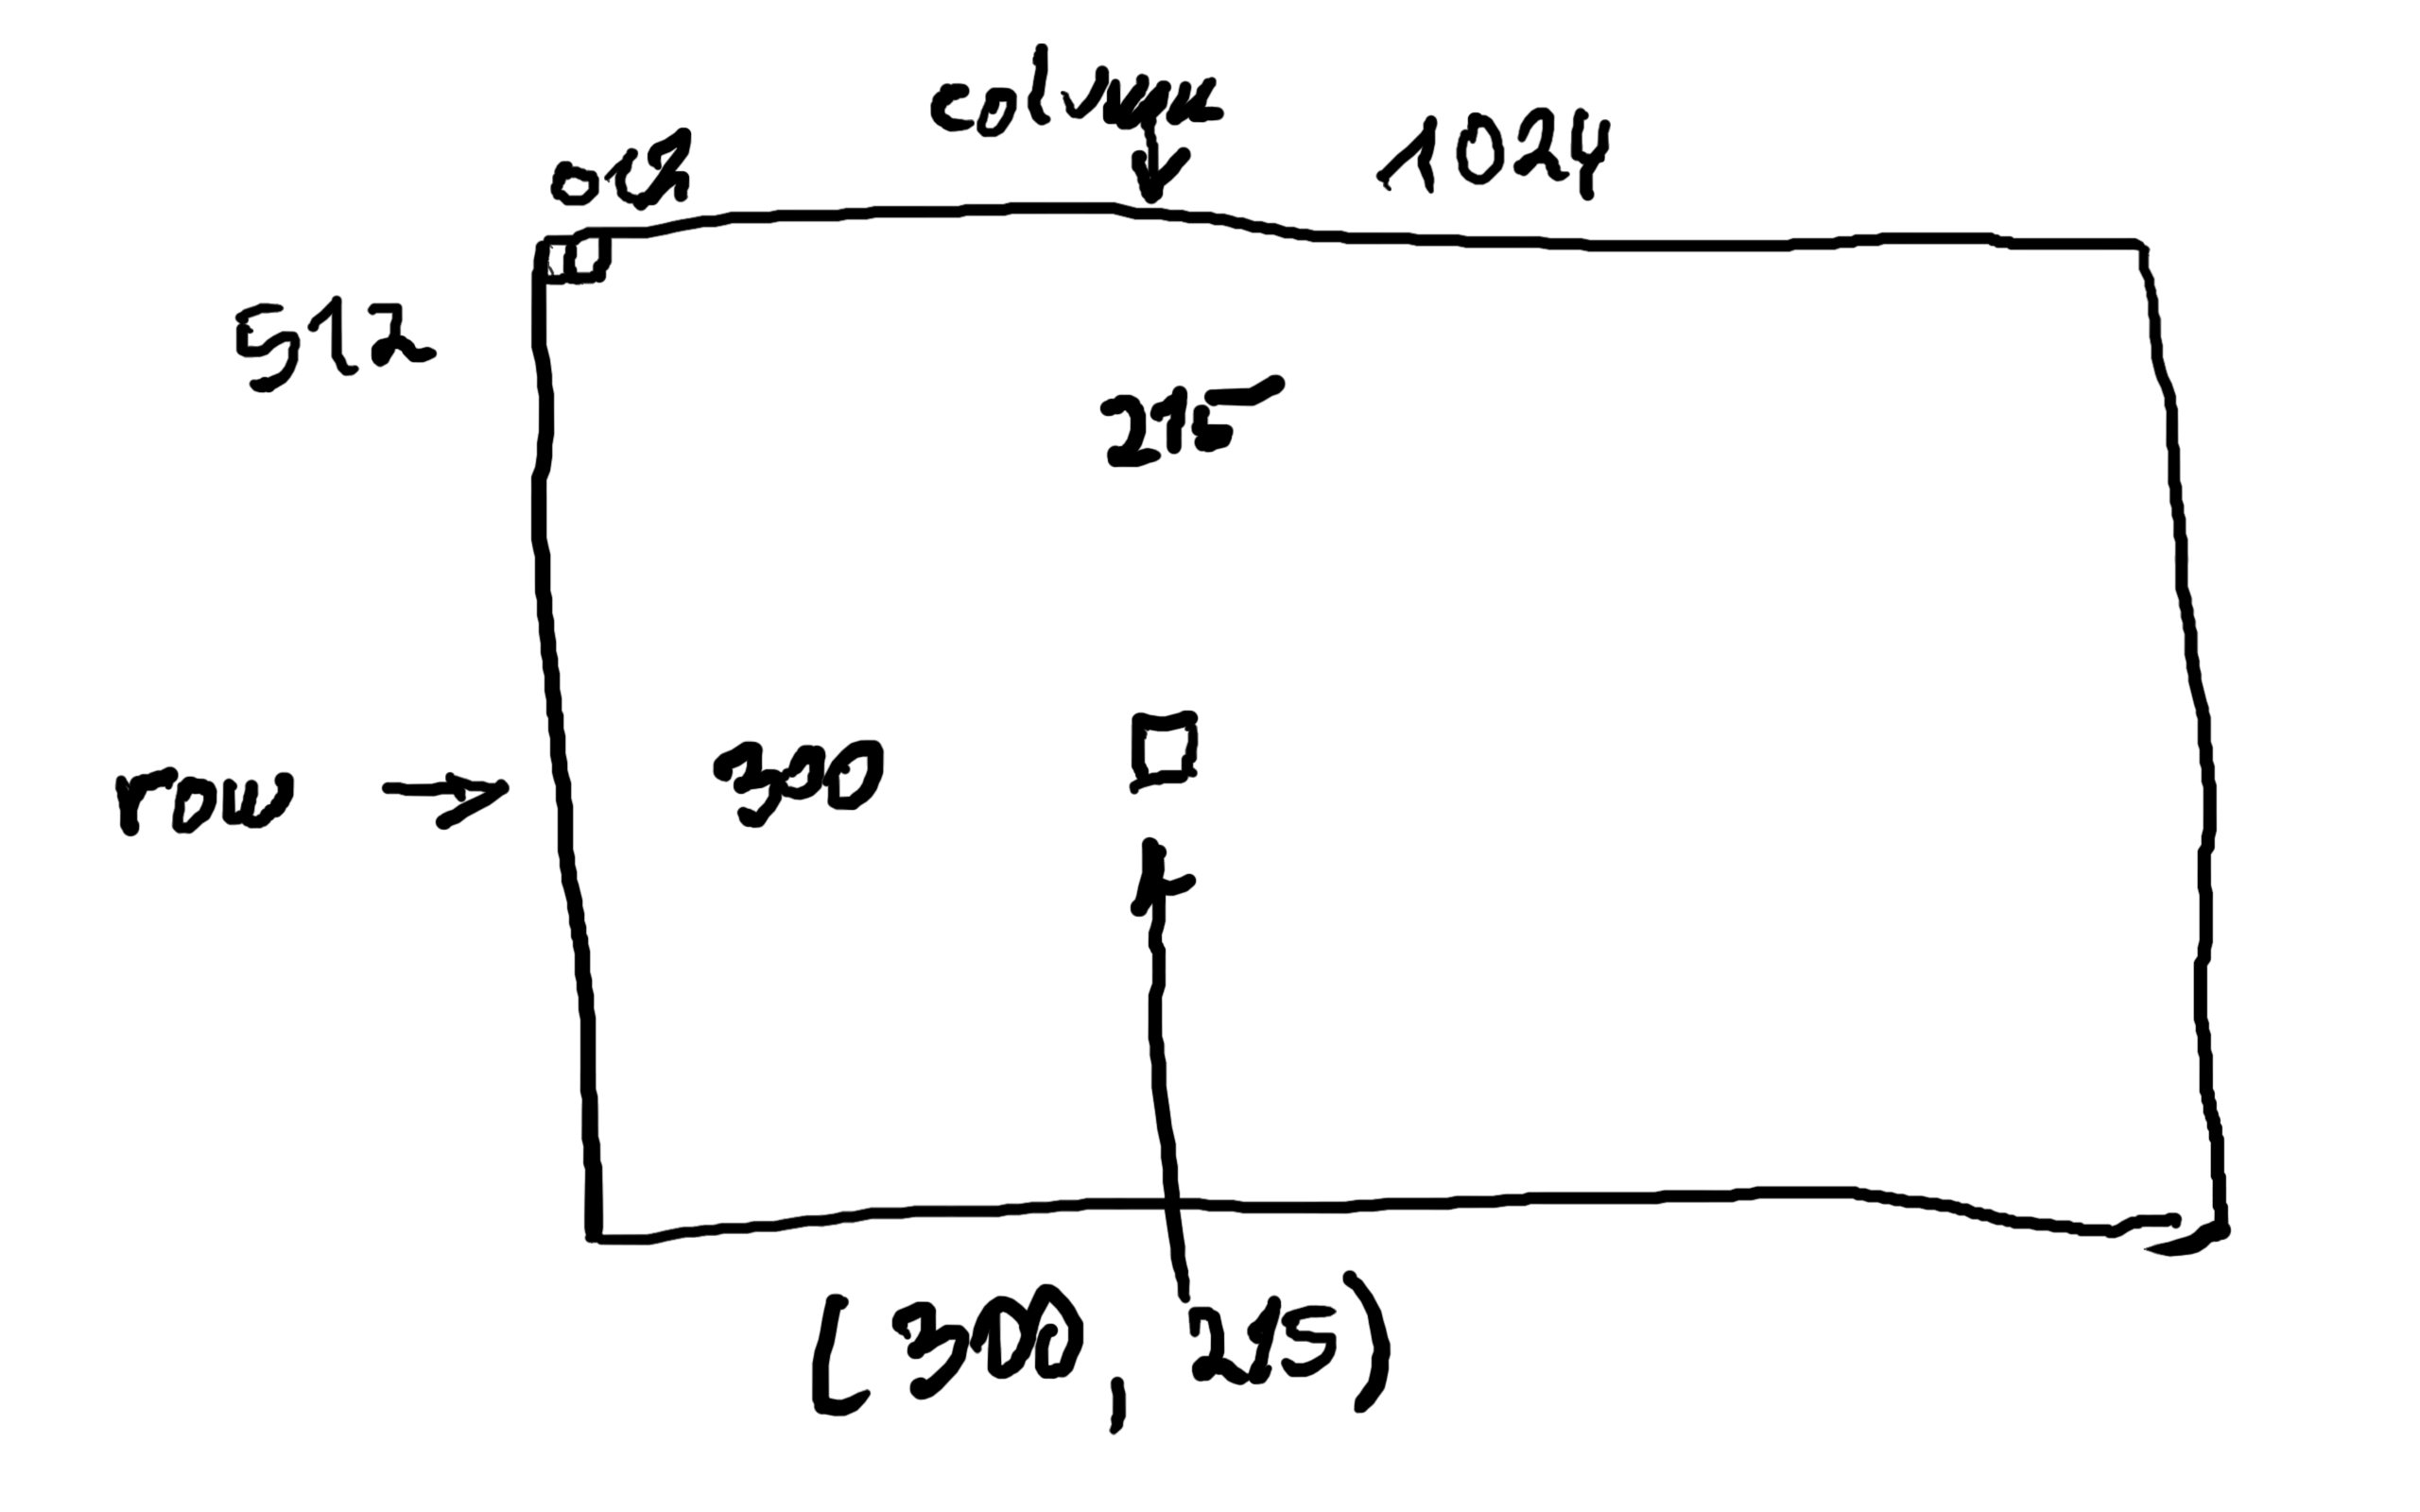 column
1024
012
512
215
row
300
(300, 215)